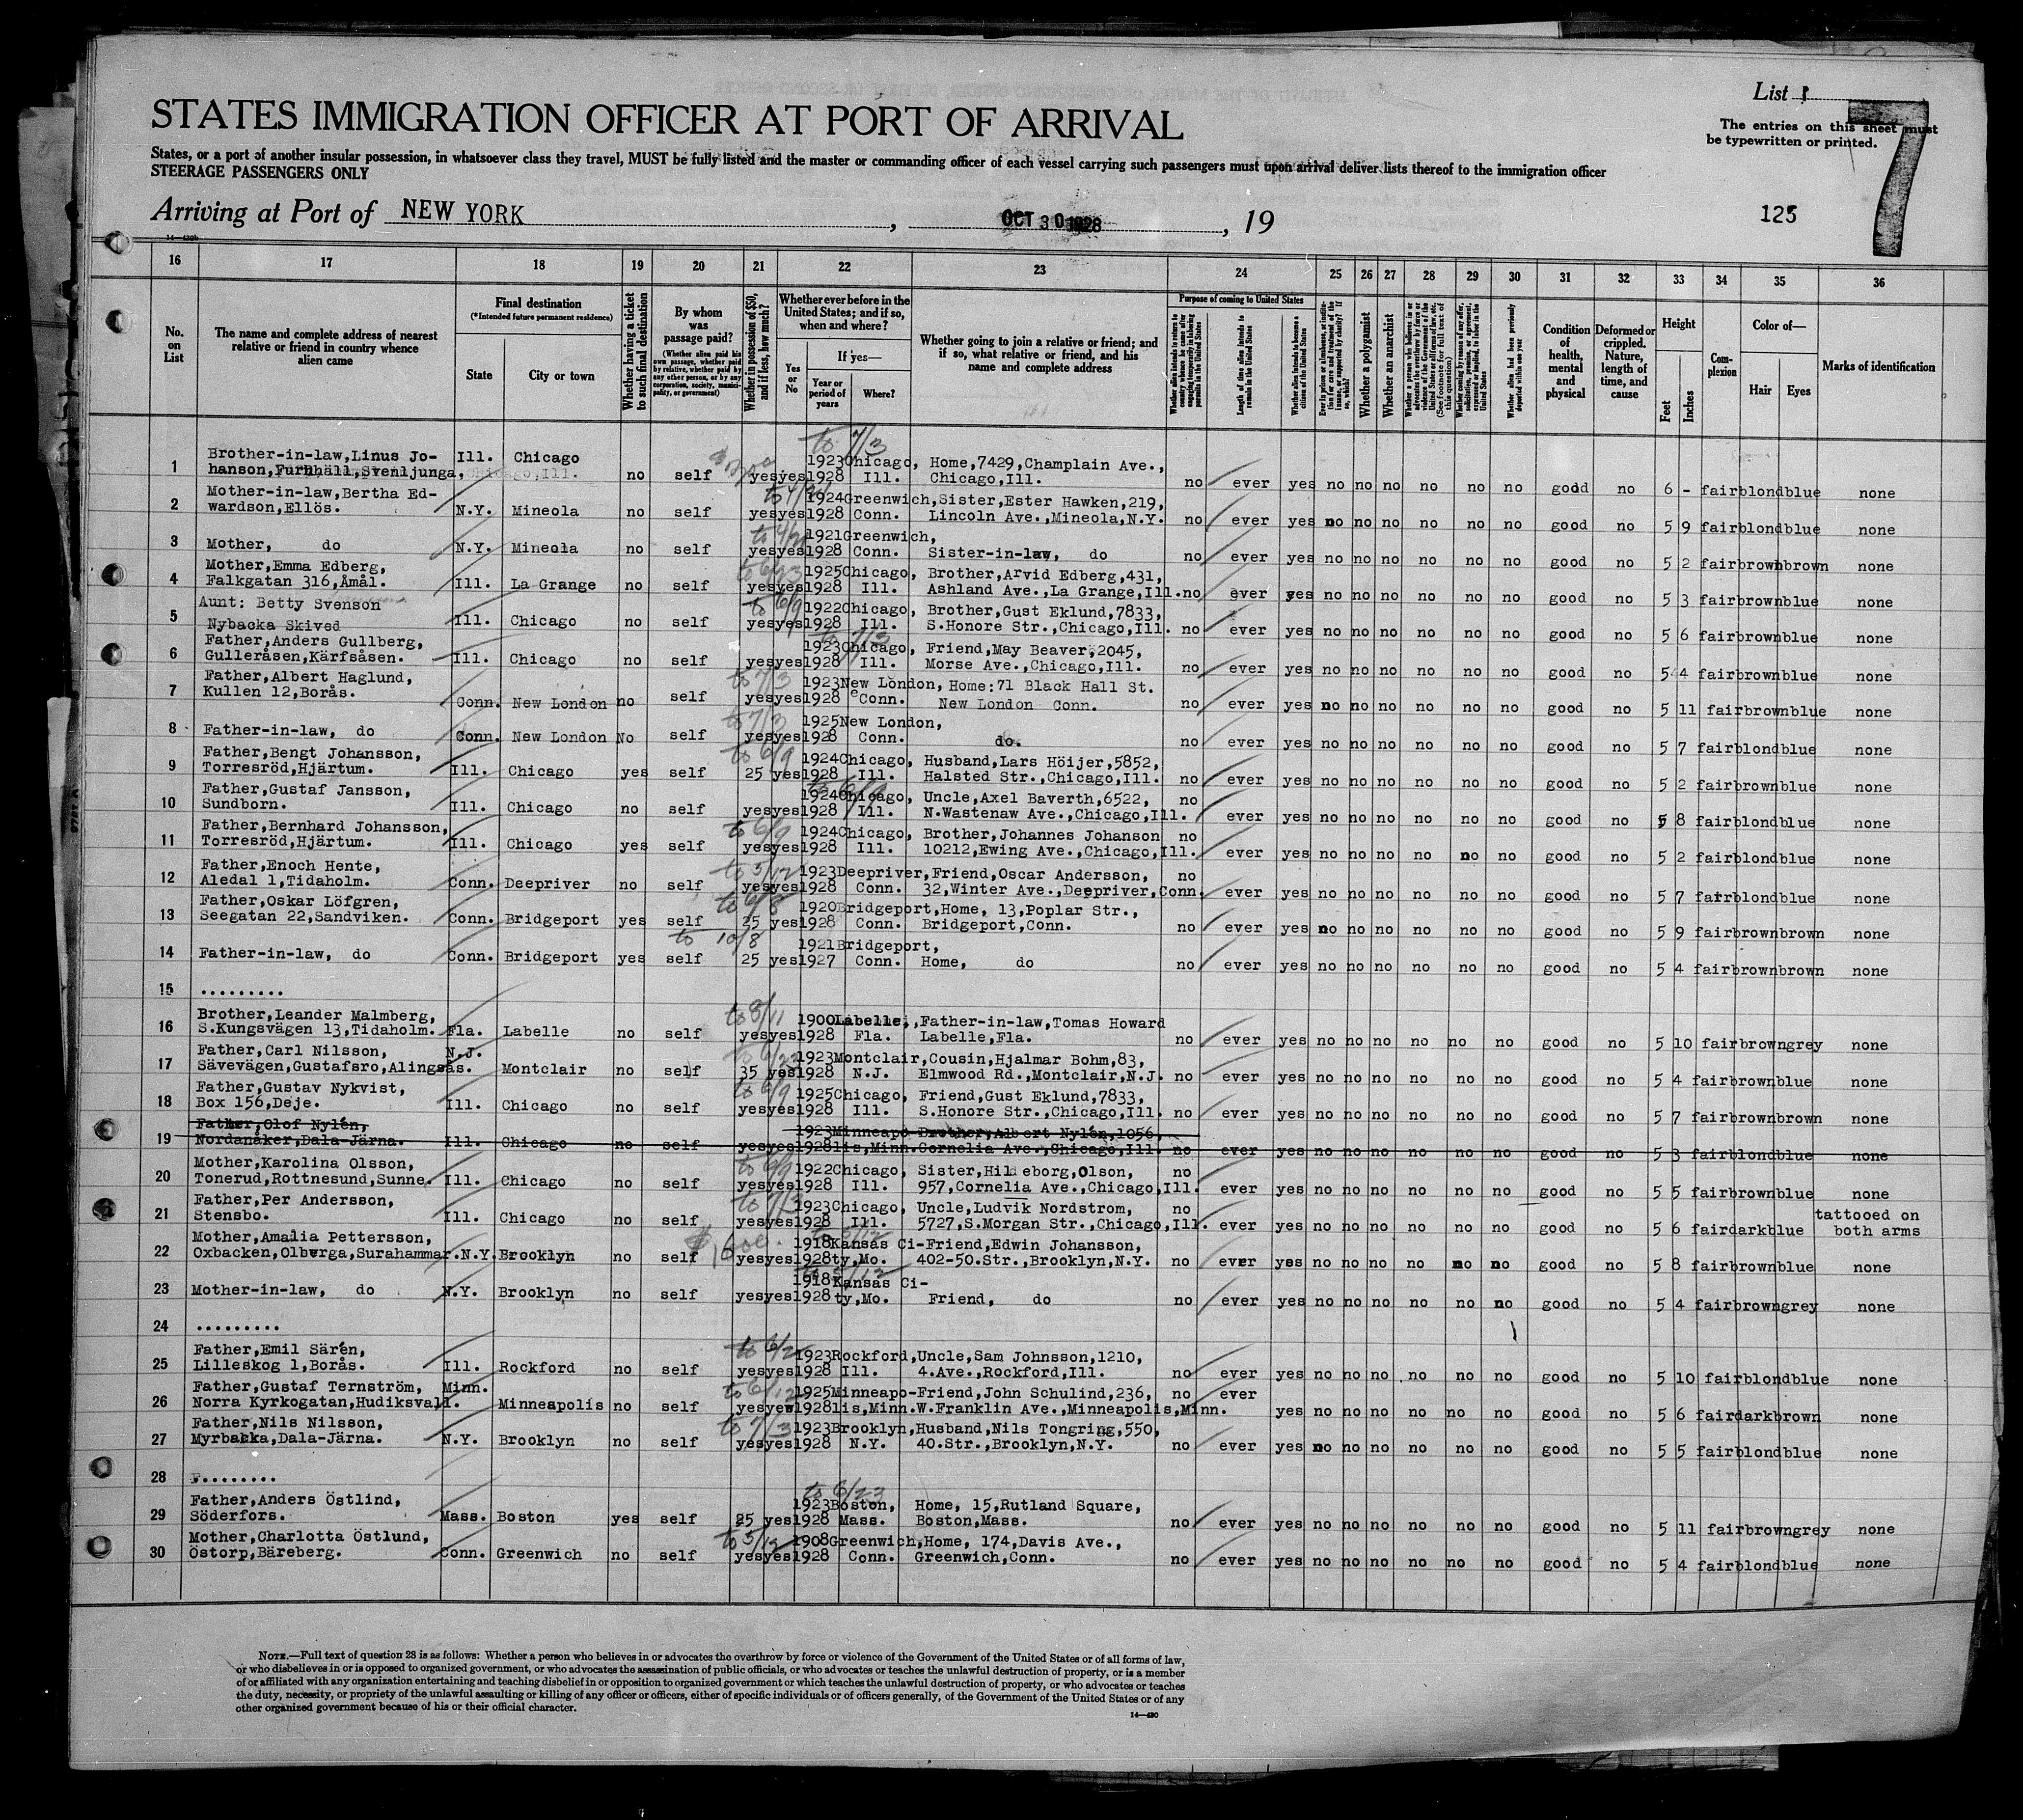 List 1
7
STATES IMMIGRATION OFFICER AT PORT OF ARRIVAL
The entries on this sheet must
be typewritten or printed.
States, or a port of another insular possession, in whatsoever class they travel, MUST be fully listed and the master or commanding officer of each vessel carrying such passengers must upon arrival deliver lists thereof to the immigration officer
STEERAGE PASSENGERS ONLY
Arriving at Port of NEW YORK, OCT 30 1928, 19
125
16 17 18 19 20 21 22 23 24 25 26 27 28 29 30 31 32 33 34 35 36
No. on List
The name and complete address of nearest relative or friend in country whence alien came
Final destination (*Intended future permanent residence)
State
City or town
Whether having a ticket to such final destination
By whom was passage paid?
(Whether alien paid his own passage, whether paid by relative, whether paid by any other person, or by any corporation, society, municipality, or government)
Whether in possession of $50, and if less, how much?
Whether ever before in the United States; and if so, when and where?
Yes or No
If yes—
Year or period of years
Where?
Whether going to join a relative or friend; and if so, what relative or friend, and his name and complete address
Purpose of coming to United States
Whether alien intends to return to country whence he came after engaging temporarily in laboring pursuits in the United States
Length of time alien intends to remain in the United States
Whether alien intends to become a citizen of the United States
Ever in prison or almshouse, or institution for care and treatment of the insane, or supported by charity? If so, which?
Whether a polygamist
Whether an anarchist
Whether a person who believes in or advocates the overthrow by force or violence of the Government of the United States or all forms of law, etc. (See footnote for full text of this question)
Whether coming by reason of any offer, solicitation, promise, or agreement, expressed or implied, to labor in the United States
Whether alien had been previously deported within one year
Condition of health, mental and physical
Deformed or crippled. Nature, length of time, and cause
Height
Feet
Inches
Complexion
Color of—
Hair
Eyes
Marks of identification
to 7/3
1 Brother-in-law,Linus Jo- Ill. Chicago 1923 Chicago, Home,7429,Champlain Ave.,
hanson,Furuhäll,Svenljunga, no self yes yes 1928 Ill. Chicago,Ill. no ever yes no no no no no no good no 6 - fair blond blue none
2 Mother-in-law,Bertha Ed- 1924 Greenwich,Sister,Ester Hawken,219,
wardson,Ellös. N.Y. Mineola no self yes yes 1928 Conn. Lincoln Ave.,Mineola,N.Y. no ever yes no no no no no no good no 5 9 fair blond blue none
3 1921 Greenwich,
Mother, do N.Y. Mineola no self yes yes 1928 Conn. Sister-in-law, do no ever yes no no no no no no good no 5 2 fair brown brown none
4 Mother,Emma Edberg, 1925 Chicago, Brother,Arvid Edberg,431,
Falkgatan 316,Åmål. Ill. La Grange no self yes yes 1928 Ill. Ashland Ave.,La Grange,Ill. no ever yes no no no no no no good no 5 3 fair brown blue none
to 6/9
5 Aunt: Betty Svenson 1922 Chicago, Brother,Gust Eklund,7833,
Nybacka Skived Ill. Chicago no self yes yes 1928 Ill. S.Honore Str.,Chicago,Ill. no ever yes no no no no no no good no 5 6 fair brown blue none
to 7/3
6 Father,Anders Gullberg, 1923 Chicago, Friend,May Beaver,2045,
Gulleråsen,Kärfsåsen. Ill. Chicago no self yes yes 1928 Ill. Morse Ave.,Chicago,Ill. no ever yes no no no no no no good no 5 4 fair brown blue none
to 7/3
7 Father,Albert Haglund, 1923 New London, Home:71 Black Hall St.
Kullen 12,Borås. Conn. New London no self yes yes 1928 Conn. New London Conn. no ever yes no no no no no no good no 5 11 fair brown blue none
to 7/3
8 1925 New London,
Father-in-law, do Conn. New London No self yes yes 1928 Conn. do. no ever yes no no no no no no good no 5 7 fair blond blue none
to 6/9
9 Father,Bengt Johansson, 1924 Chicago, Husband,Lars Höijer,5852,
Torresröd,Hjärtum. Ill. Chicago yes self 25 yes 1928 Ill. Halsted Str.,Chicago,Ill. no ever yes no no no no no no good no 5 2 fair brown blue none
to 6/9
10 Father,Gustaf Jansson, 1924 Chicago, Uncle,Axel Baverth,6522, no
Sundborn. Ill. Chicago no self yes yes 1928 Ill. N.Wastenaw Ave.,Chicago,Ill. ever yes no no no no no no good no 5 8 fair blond blue none
to 6/9
11 Father,Bernhard Johansson, 1924 Chicago, Brother,Johannes Johanson no
Torresröd,Hjärtum. Ill. Chicago yes self yes yes 1928 Ill. 10212,Ewing Ave.,Chicago,Ill. ever yes no no no no no no good no 5 2 fair blond blue none
to 5/12
12 Father,Enoch Hente, 1923 Deepriver,Friend,Oscar Andersson, no
Aledal 1,Tidaholm. Conn. Deepriver no self yes yes 1928 Conn. 32,Winter Ave.,Deepriver,Conn. ever yes no no no no no no good no 5 7 fair blond blue none
to 6/8
13 Father,Oskar Löfgren, 1920 Bridgeport,Home, 13,Poplar Str.,
Seegatan 22,Sandviken. Conn. Bridgeport yes self 25 yes 1928 Conn. Bridgeport,Conn. no ever yes no no no no no no good no 5 9 fair brown brown none
to 10/8
14 1921 Bridgeport,
Father-in-law, do Conn. Bridgeport yes self 25 yes 1927 Conn. Home, do no ever yes no no no no no no good no 5 4 fair brown brown none
15 .........
16 Brother,Leander Malmberg, 1900 Labelle,,Father-in-law,Tomas Howard
S.Kungsvägen 13,Tidaholm. Fla. Labelle no self yes yes 1928 Fla. Labelle,Fla. no ever yes no no no no no no good no 5 10 fair brown grey none
to 6/23
17 Father,Carl Nilsson, N.J. 1923 Montclair,Cousin,Hjalmar Bohm,83,
Sävevägen,Gustafsro,Alingsås. Montclair no self 35 yes 1928 N.J. Elmwood Rd.,Montclair,N.J. no ever yes no no no no no no good no 5 4 fair brown blue none
to 6/9
18 Father,Gustav Nykvist, 1925 Chicago, Friend,Gust Eklund,7833,
Box 156,Deje. Ill. Chicago no self yes yes 1928 Ill. S.Honore Str.,Chicago,Ill. no ever yes no no no no no no good no 5 7 fair brown brown none
19 Father,Olof Nylén, 1923 Minneapo-Brother,Albert Nylén,1056,
Nordanåker,Dala-Järna. Ill. Chicago no self yes yes 1928 lis,Minn.Cornelia Ave.,Chicago,Ill. no ever yes no no no no no no good no 5 3 fair blond blue none
20 Mother,Karolina Olsson, 1922 Chicago, Sister,Hildeborg,Olson, no
Tonerud,Rottnesund,Sunne. Ill. Chicago no self yes yes 1928 Ill. 957,Cornelia Ave.,Chicago,Ill. ever yes no no no no no no good no 5 5 fair brown blue none
to 7/3
21 Father,Per Andersson, 1923 Chicago, Uncle,Ludvik Nordstrom, no tattooed on
Stensbo. Ill. Chicago no self yes yes 1928 Ill. 5727,S.Morgan Str.,Chicago,Ill. ever yes no no no no no no good no 5 6 fair dark blue both arms
22 Mother,Amalia Pettersson, 1918 Kansas Ci-Friend,Edwin Johansson,
Oxbacken,Olberga,Surahammar. N.Y. Brooklyn no self yes yes 1928 ty,Mo. 402-50.Str.,Brooklyn,N.Y. no ever yes no no no no no no good no 5 8 fair brown blue none
23 1918 Kansas Ci-
Mother-in-law, do N.Y. Brooklyn no self yes yes 1928 ty,Mo. Friend, do no ever yes no no no no no no good no 5 4 fair brown grey none
24 .........
to 6/2
25 Father,Emil Särén, 1923 Rockford,Uncle,Sam Johnsson,1210,
Lilleskog 1,Borås. Ill. Rockford no self yes yes 1928 Ill. 4.Ave.,Rockford,Ill. no ever yes no no no no no no good no 5 10 fair blond blue none
to 6/12
26 Father,Gustaf Ternström, Minn. 1925 Minneapo-Friend,John Schulind,236, no ever
Norra Kyrkogatan,Hudiksvall. Minneapolis no self yes yes 1928 lis,Minn.W.Franklin Ave.,Minneapolis,Minn. yes no no no no no no good no 5 6 fair dark brown none
to 7/3
27 Father,Nils Nilsson, 1923 Brooklyn,Husband,Nils Tongring,550,
Myrbacka,Dala-Järna. N.Y. Brooklyn no self yes yes 1928 N.Y. 40.Str.,Brooklyn,N.Y. no ever yes no no no no no no good no 5 5 fair blond blue none
28 .........
to 6/23
29 Father,Anders Östlind, 1923 Boston, Home, 15,Rutland Square,
Söderfors. Mass. Boston yes self 25 yes 1928 Mass. Boston,Mass. no ever yes no no no no no no good no 5 11 fair brown grey none
to 5/12
30 Mother,Charlotta Östlund, 1908 Greenwich,Home, 174,Davis Ave.,
Östorp,Bäreberg. Conn. Greenwich no self yes yes 1928 Conn. Greenwich,Conn. no ever yes no no no no no no good no 5 4 fair blond blue none
NOTE.—Full text of question 28 is as follows: Whether a person who believes in or advocates the overthrow by force or violence of the Government of the United States or of all forms of law,
or who disbelieves in or is opposed to organized government, or who advocates the assassination of public officials, or who advocates or teaches the unlawful destruction of property, or is a member
of or affiliated with any organization entertaining and teaching disbelief in or opposition to organized government or which teaches the unlawful destruction of property, or who advocates or teaches
the duty, necessity, or propriety of the unlawful assaulting or killing of any officer or officers, either of specific individuals or of officers generally, of the Government of the United States or of any
other organized government because of his or their official character.
14—430